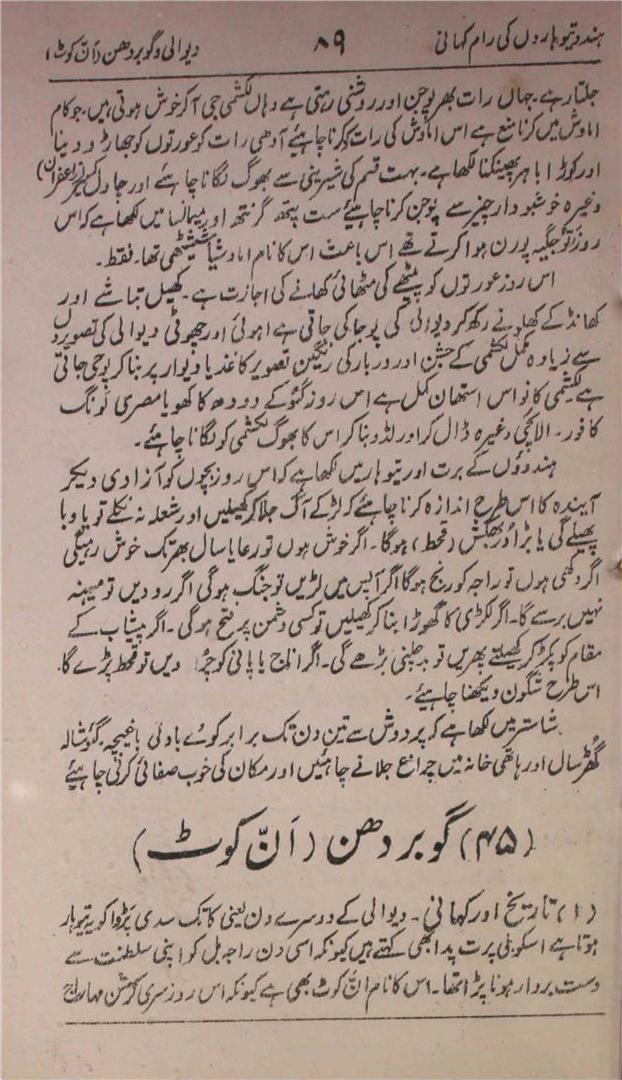 ہندو تیوہاروں کی رام کہانی ۸۹ دیوالی و گوبردھن (اَنّ کوٹ)
جلتا رہے۔ جہاں رات بھر پوجن اور روشنی رہتی ہے وہاں لکشمی جی آ کر خوش ہوتی ہیں۔ جو کام
اماوش میں کرنا منع ہے اس اماوش کی رات کرنا چاہئیے آدھی رات کو عورتوں کو جھاڑو دینا
اور کوڑا باہر پھینکنا لکھا ہے۔ بہت قسم کی شیرینی سے بھوگ لگانا چاہئے اور چاول کیسر (زعفران)
وغیرہ خوشبودار چیز سے پوجن کرنا چاہئیے ست پتھ گرنتھ اور میمانسا میں لکھا ہے کہ اس
روز نو جگیہ پورن ہوا کرتے تھے اس باعث اس کا نام اماوشیا تھا۔ فقط۔
اس روز عورتوں کو پیٹھے کی مٹھائی کھانے کی اجازت ہے۔ کھیل بتاشے اور
کھانڈ کے کھلونے رکھ کر دیوالی کی پوجا کی جاتی ہے اہوئی اور چھوٹی دیوالی کی تصویروں
سے زیادہ مکمل لکشمی کے جشن اور دربار کی رنگین تصویر کاغذ یا دیوار پر بنا کر پوجی جاتی
ہے لکشمی کا نواس استھان کمل ہے اس روز گئو کے دودھ کا کھویا مصری لونگ
کافور۔ الائچی وغیرہ ڈال کر اور لڈو بنا کر اس کا بھوگ لکشمی کو لگانا چاہئے۔
ہندوؤں کے برت اور تیوہار میں لکھا ہے کہ اس روز بچوں کو آزادی دیکر
آیندہ کا اس طرح اندازہ کرنا چاہئے کہ لڑکے آگ جلا کر کھیلیں اور شعلہ نہ نکلے تو یا وبا
پھیلے گی یا بڑا دُربھکش (قحط) ہوگا۔ اگر خوش ہوں تو رعایا سال بھر تک خوش رہیگی
اگر دکھی ہوں تو راجہ کو رنج ہوگا اگر آپس میں لڑیں تو جنگ ہوگی اگر رو دیں تو میہنہ
نہیں برسے گا۔ اگر لکڑی کا گھوڑا بنا کر کھیلیں تو کسی دشمن پر فتح ہوگی۔ اگر پیشاب کے
مقام کو پکڑ کر کھیلتے پھریں تو بدچلنی بڑھے گی۔ اگر اناج یا پانی کو چرا دیں تو قحط پڑے گا۔
اس طرح شگون دیکھنا چاہئیے۔
شاستر میں لکھا ہے کہ پردوش سے تین دن تک برابر کوئے باولی باغیچہ۔ گئوشالہ
گھڑسال اور ہاتھی خانہ میں چراغ جلانے چاہئیں اور مکان کی خوب صفائی کرنی چاہئیے
(۴۵) گوبردھن (اَنّ کوٹ)
(۱) تاریخ اور کہانی۔ دیوالی کے دوسرے دن یعنی کاتک سدی پڑوا کو یہ تیوہار
ہوتا ہے اسکو بلی پرت پدا بھی کہتے ہیں کیونکہ اسی دن راجہ بل کو اپنی سلطنت سے
دست بردار ہونا پڑا تھا۔ اس کا نام انّ کوٹ بھی ہے کیونکہ اس روز سری کرشن مہاراج